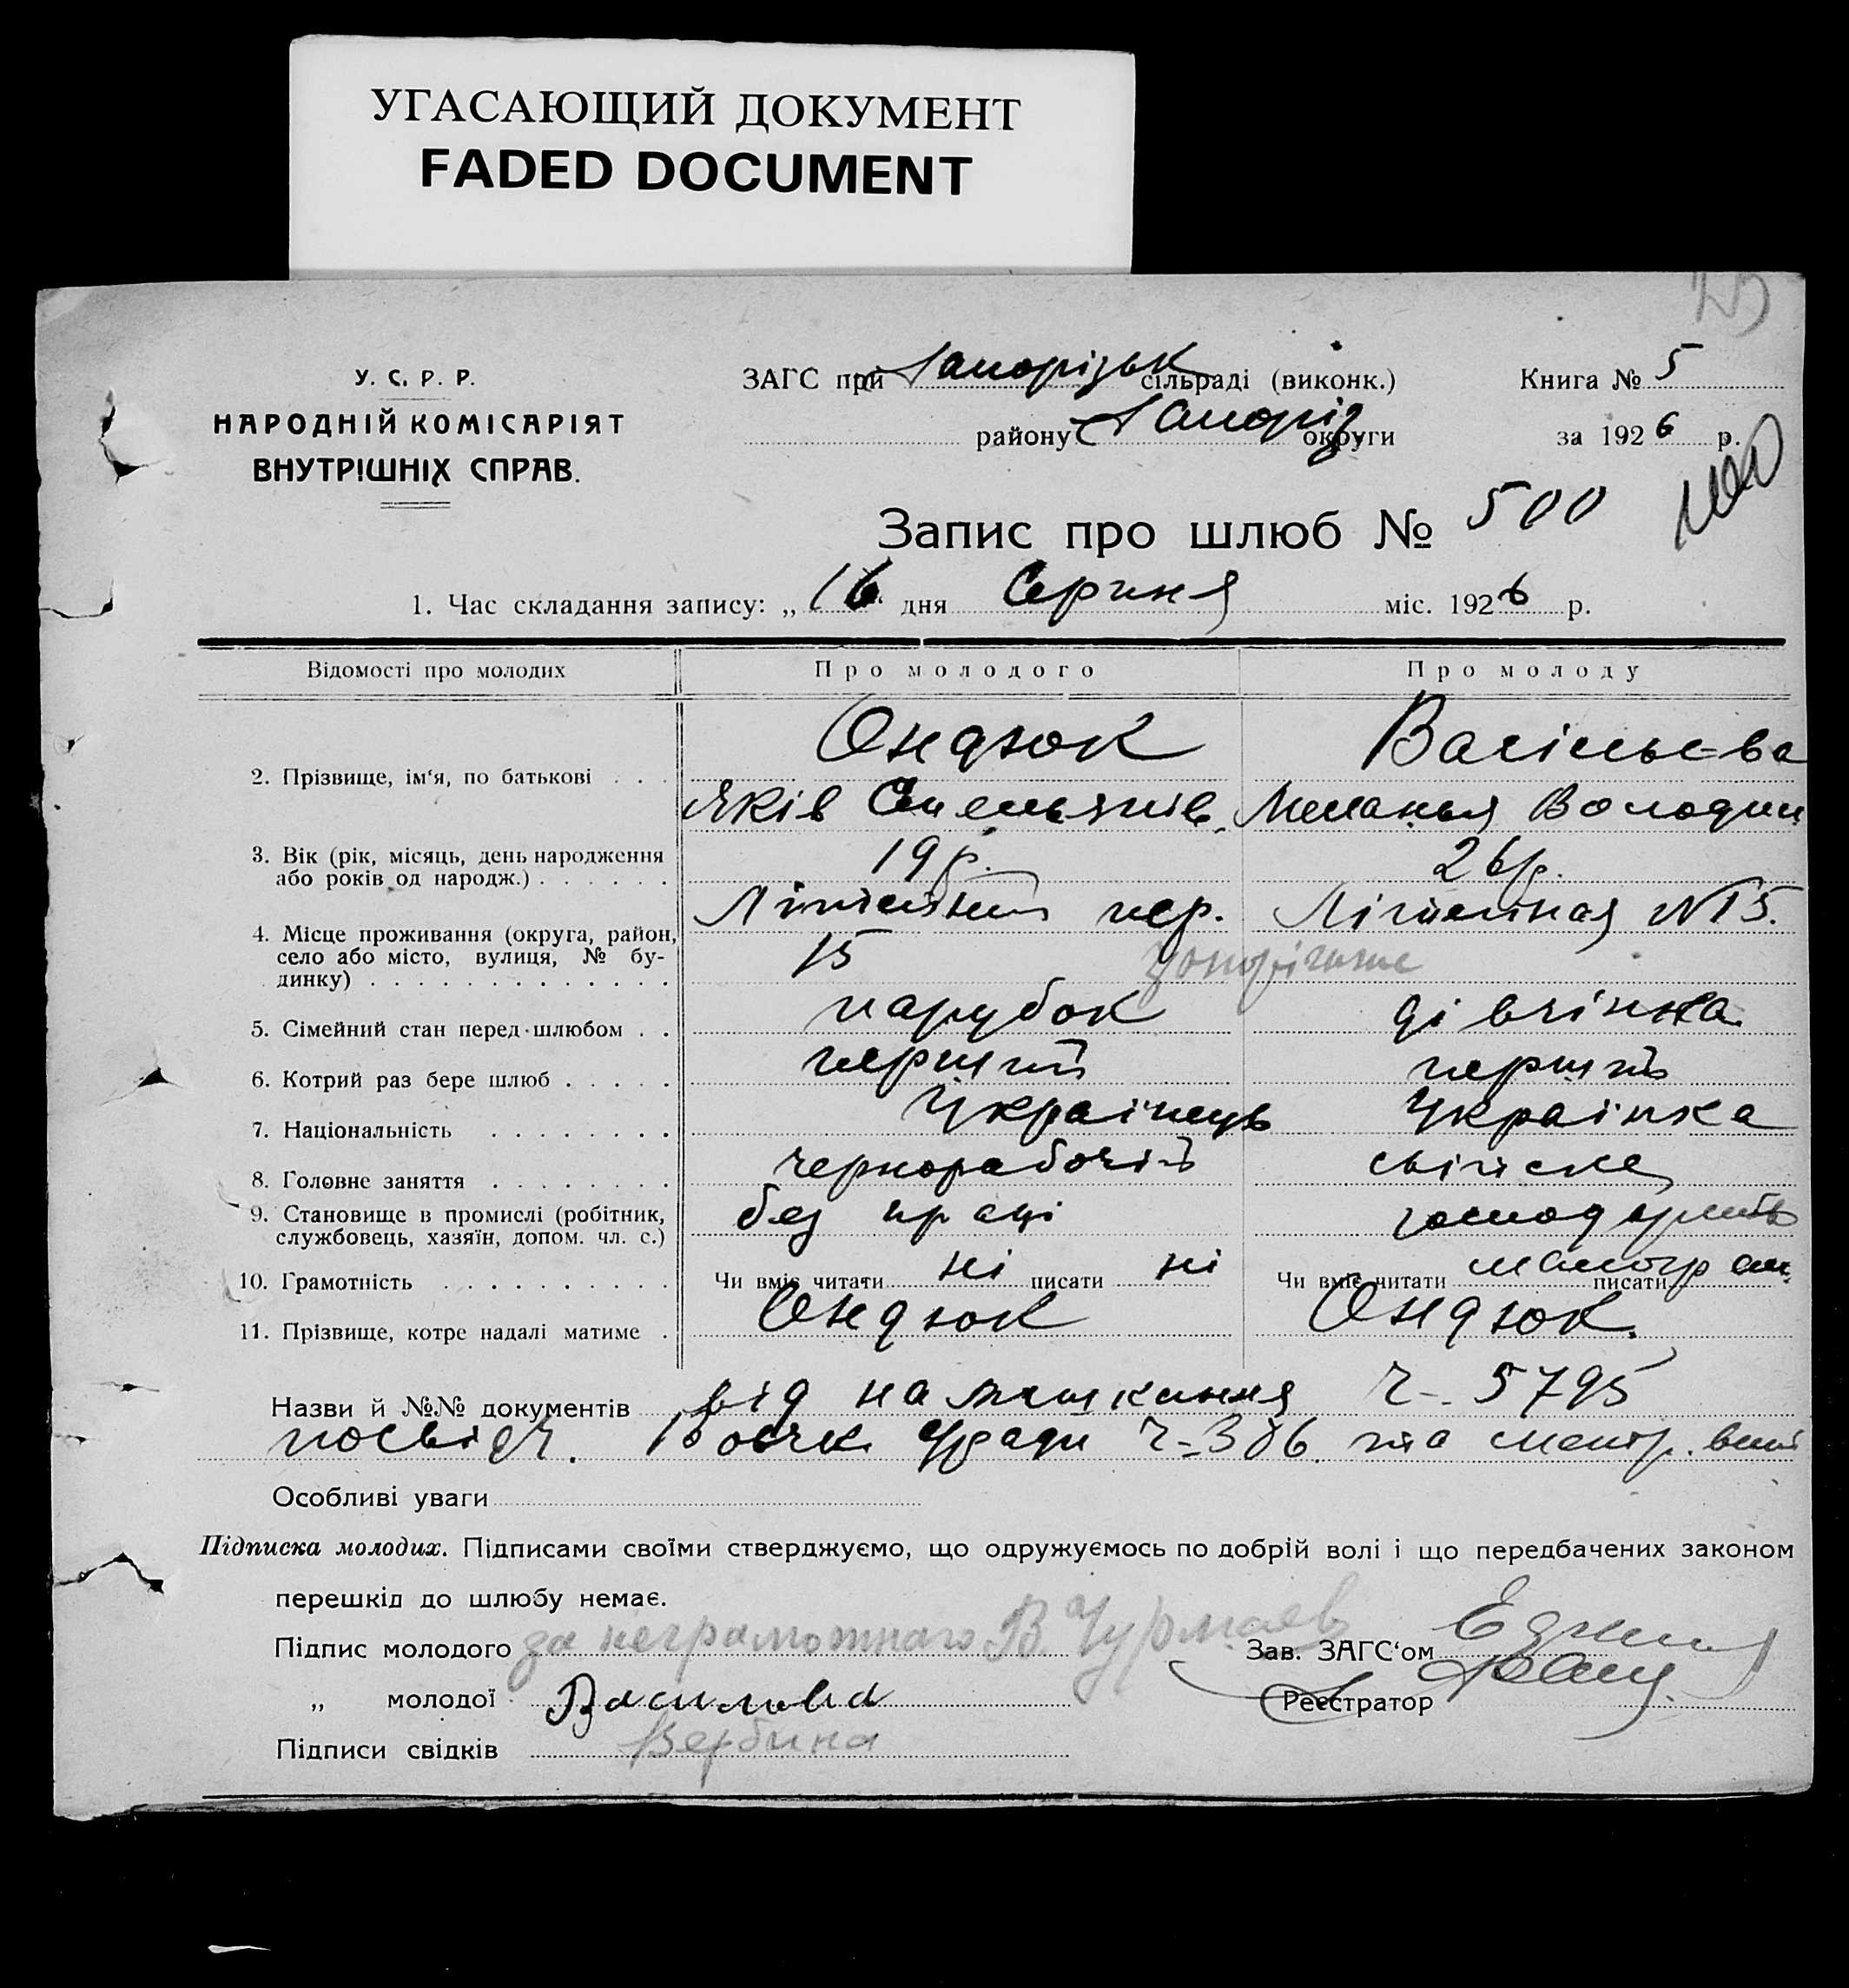 УГАСАЮЩИЙ ДОКУМЕНТ
FADED DOCUMENT
У. С. Р. Р.
НАРОДНІЙ КОМІСАРІЯТ
ВНУТРІШНІХ СПРАВ.
ЗАГС при Запорізьк сільраді (виконк.)
Книга № 5
району Запоріз округи
за 1926 р.
Запис про шлюб № 500
1. Час складання запису: „16" дня Серпня міс. 1926 р.
Відомості про молодих
Про молодого
Про молоду
2. Прізвище, ім'я, по батькові . . .
Ондзюк
Яків Омельянів.
Васільєва
Меланья Володим
3. Вік (рік, місяць, день народження
або років од народж.) . . . . . .
19 р.
26 р.
4. Місце проживання (округа, район,
село або місто, вулиця, № бу-
динку) . . . . . . . . . . . . .
Літейний пер.
15
Літейная №15.
5. Сімейний стан перед шлюбом . .
парубок
дівчінка
6. Котрий раз бере шлюб . . . . .
перший
перший
7. Національність . . . . . . . .
Українець
Українка
8. Головне заняття . . . . . . . .
чернорабочій
свійске
9. Становище в промислі (робітник,
службовець, хазяїн, допом. чл. с.)
без праці
10. Грамотність . . . . . . . . . .
Чи вміє читати ні писати ні
Чи вміє читати писати
11. Прізвище, котре надалі матиме .
Ондзюк
Ондзюк.
Назви й №№ документів від на мешкання Ч-5795
посвідч. та метр.
Особливі уваги
Підписка молодих. Підписами своїми стверджуємо, що одружуємось по добрій волі і що передбачених законом
перешкід до шлюбу немає.
Підпис молодого за неграмотнаго В.
Зав. ЗАГС'ом
„ молодої
Реєстратор
Підписи свідків Вербина